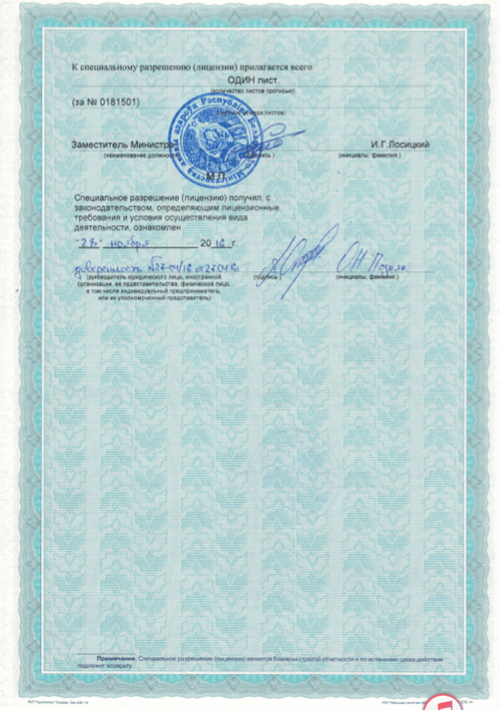 К специальному разрешению (лицензии) прилагается всего
ОДИН лист.
(количество листов прописью)
(за № 0181501)
Заместитель Министра
И.Г.Лосицкий
(наименование должности)
(подпись)
(инициалы, фамилия)
М.П.
Специальное разрешение (лицензию) получил, с
законодательством, определяющим лицензионные
требования и условия осуществления вида
деятельности, ознакомлен
"28" ноября 2016 г.
доверенность
(подпись)
(инициалы, фамилия)
(руководитель юридического лица, иностранной
организации, ее представительства, физическое лицо,
в том числе индивидуальный предприниматель,
или их уполномоченный представитель)
Примечание. Специальное разрешение (лицензия) является бланком строгой отчетности и по истечении срока действия
подлежит возврату.